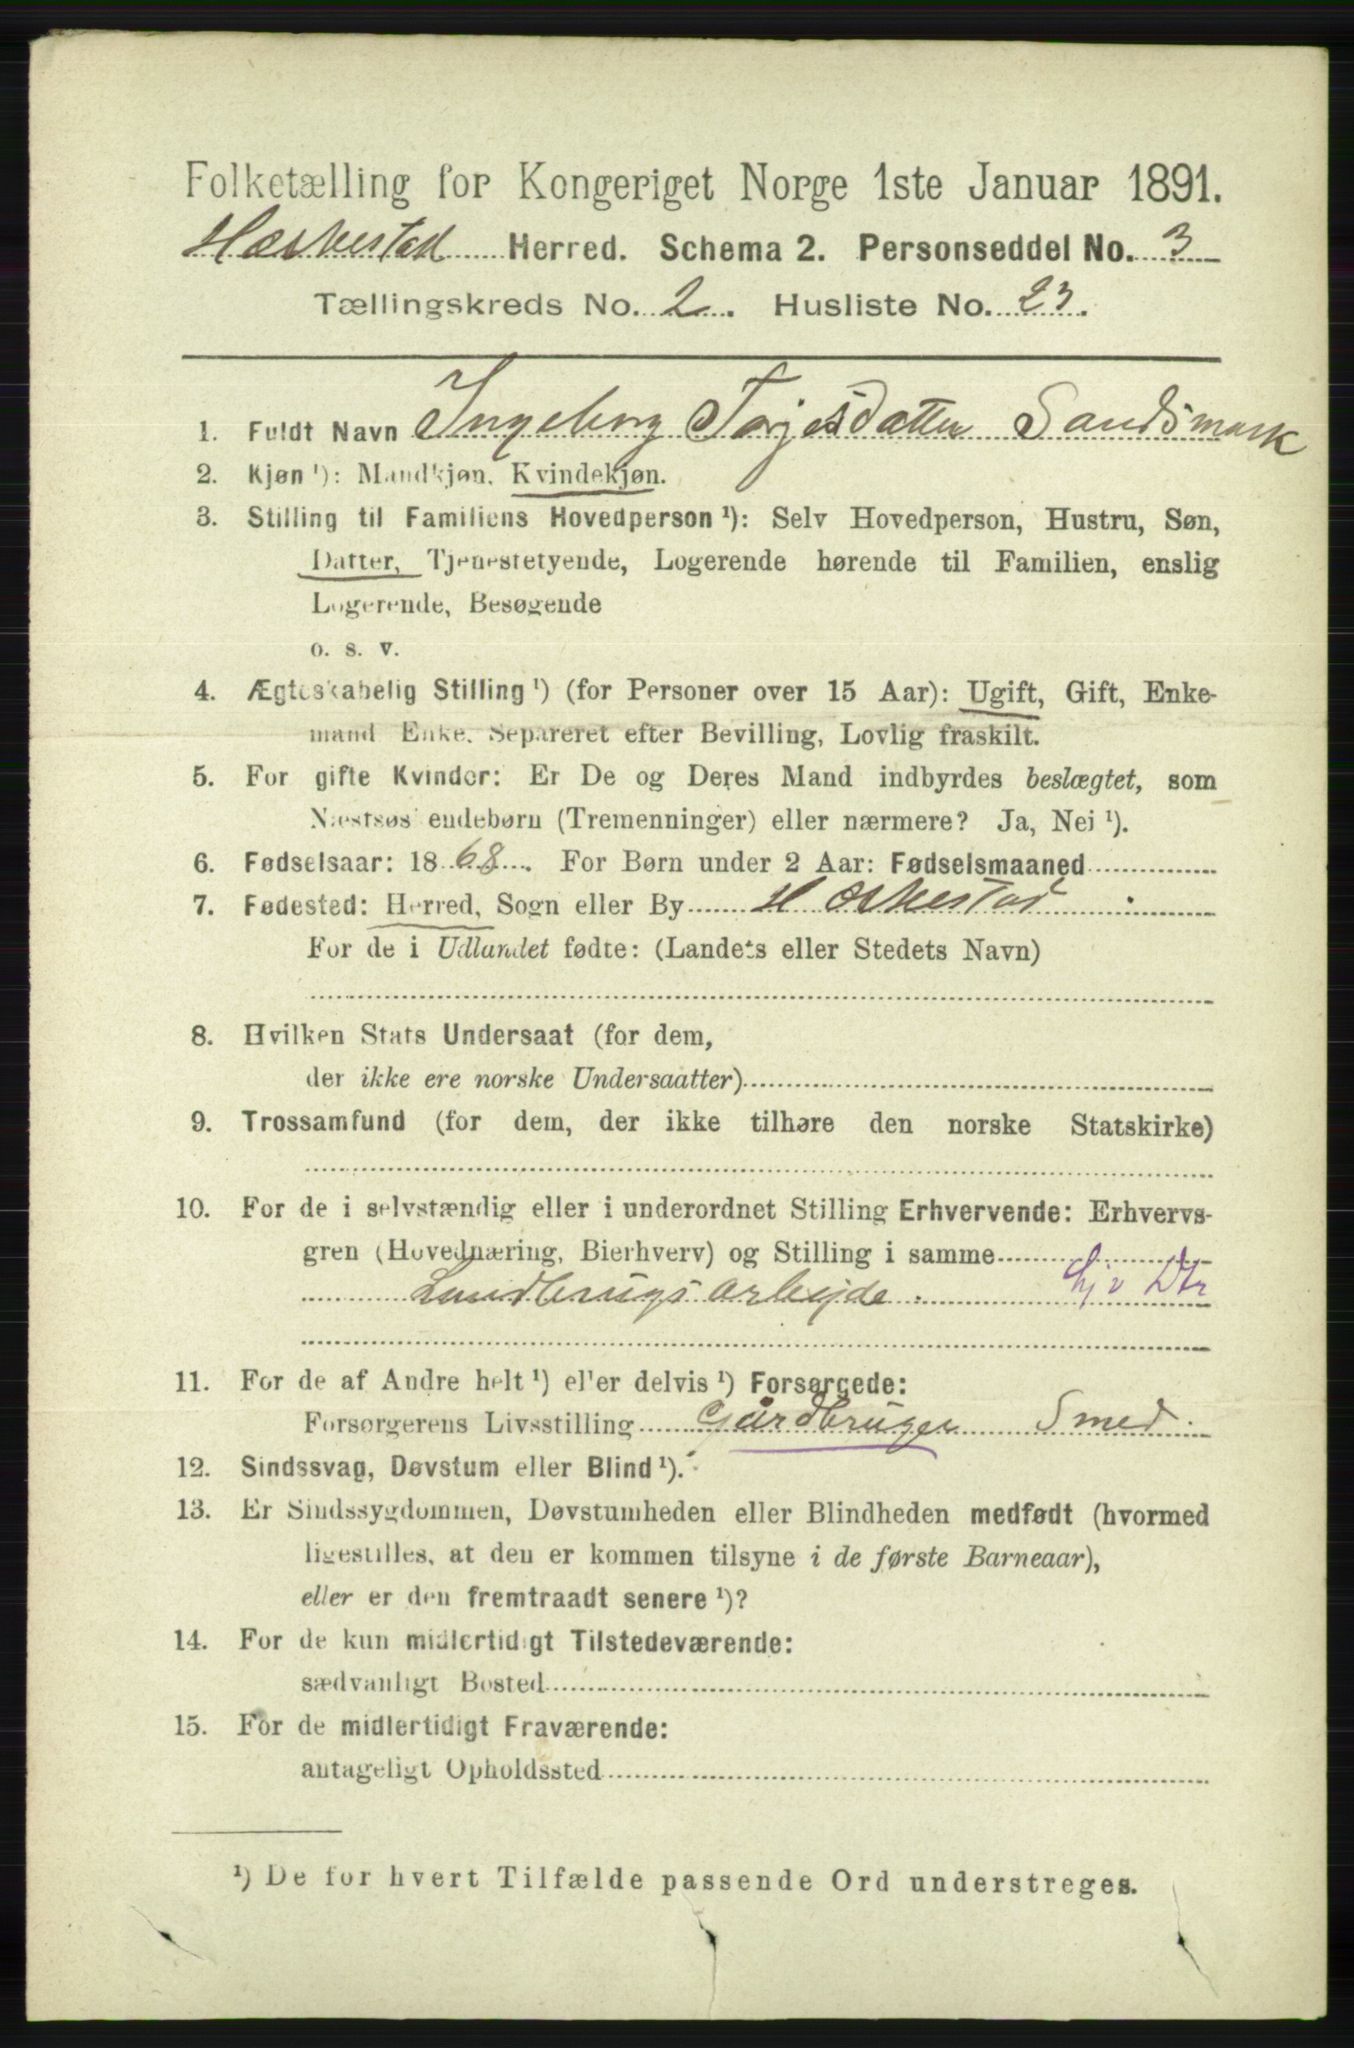 Folketælling for Kongeriget Norge 1ste Januar 1891.
Hæskestad Herred. Schema 2. Personseddel No. 3
Tællingskreds No. 2. Husliste No. 23.
1. Fuldt Navn Ingeborg Torjesdatter Sandsmark
2. Kjøn ¹): Mandkjøn. Kvindekjøn.
3. Stilling til Familiens Hovedperson ¹): Selv Hovedperson, Hustru, Søn,
Datter, Tjenestetyende, Logerende hørende til Familien, enslig
Logerende, Besøgende
o. s. v.
4. Ægteskabelig Stilling ¹) (for Personer over 15 Aar): Ugift, Gift, Enke-
mand Enke, Separeret efter Bevilling, Lovlig fraskilt.
5. For gifte Kvinder: Er De og Deres Mand indbyrdes beslægtet, som
Næstsøskendebørn (Tremenninger) eller nærmere? Ja, Nei ¹).
6. Fødselsaar: 1868. For Børn under 2 Aar: Fødselsmaaned
7. Fødested: Herred, Sogn eller By Hæskestad
For de i Udlandet fødte: (Landets eller Stedets Navn)
8. Hvilken Stats Undersaat (for dem,
der ikke ere norske Undersaatter)
9. Trossamfund (for dem, der ikke tilhøre den norske Statskirke)
10. For de i selvstændig eller i underordnet Stilling Erhvervende: Erhvervs-
gren (Hovednæring, Bierhverv) og Stilling i samme
Landbrugsarbejde. hjv Dtr
11. For de af Andre helt ¹) eller delvis ¹) Forsørgede:
Forsørgerens Livsstilling Gårdbruger Smed.
12. Sindssvag, Døvstum eller Blind ¹).
13. Er Sindssygdommen, Døvstumheden eller Blindheden medfødt (hvormed
ligestilles, at den er kommen tilsyne i de første Barneaar),
eller er den fremtraadt senere ¹)?
14. For de kun midlertidigt Tilstedeværende:
sædvanligt Bosted
15. For de midlertidigt Fraværende:
antageligt Opholdssted
¹) De for hvert Tilfælde passende Ord understreges.